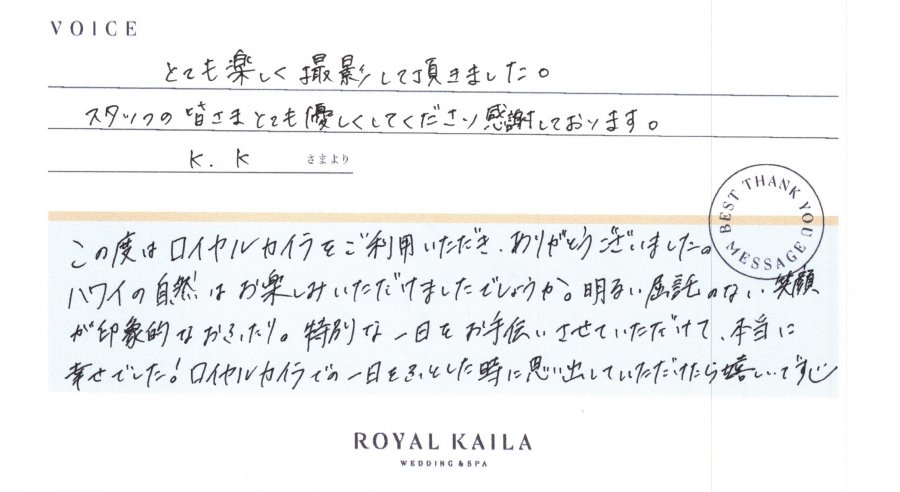 VOICE
とても楽しく撮影して頂きました。
スタッフの皆さまとても優しくしてくださり感謝しております。
K.K さまより
BEST THANK YOU MESSAGE
この度はロイヤルカイラをご利用いただき、ありがとうございました。
ハワイの自然はお楽しみいただけましたでしょうか。明るい屈託のない笑顔
が印象的なおふたり。特別な一日をお手伝いさせていただけて、本当に
幸せでした!ロイヤルカイラでの一日をふとした時に思い出していただけたら嬉しいです
ROYAL KAILA
WEDDING & SPA